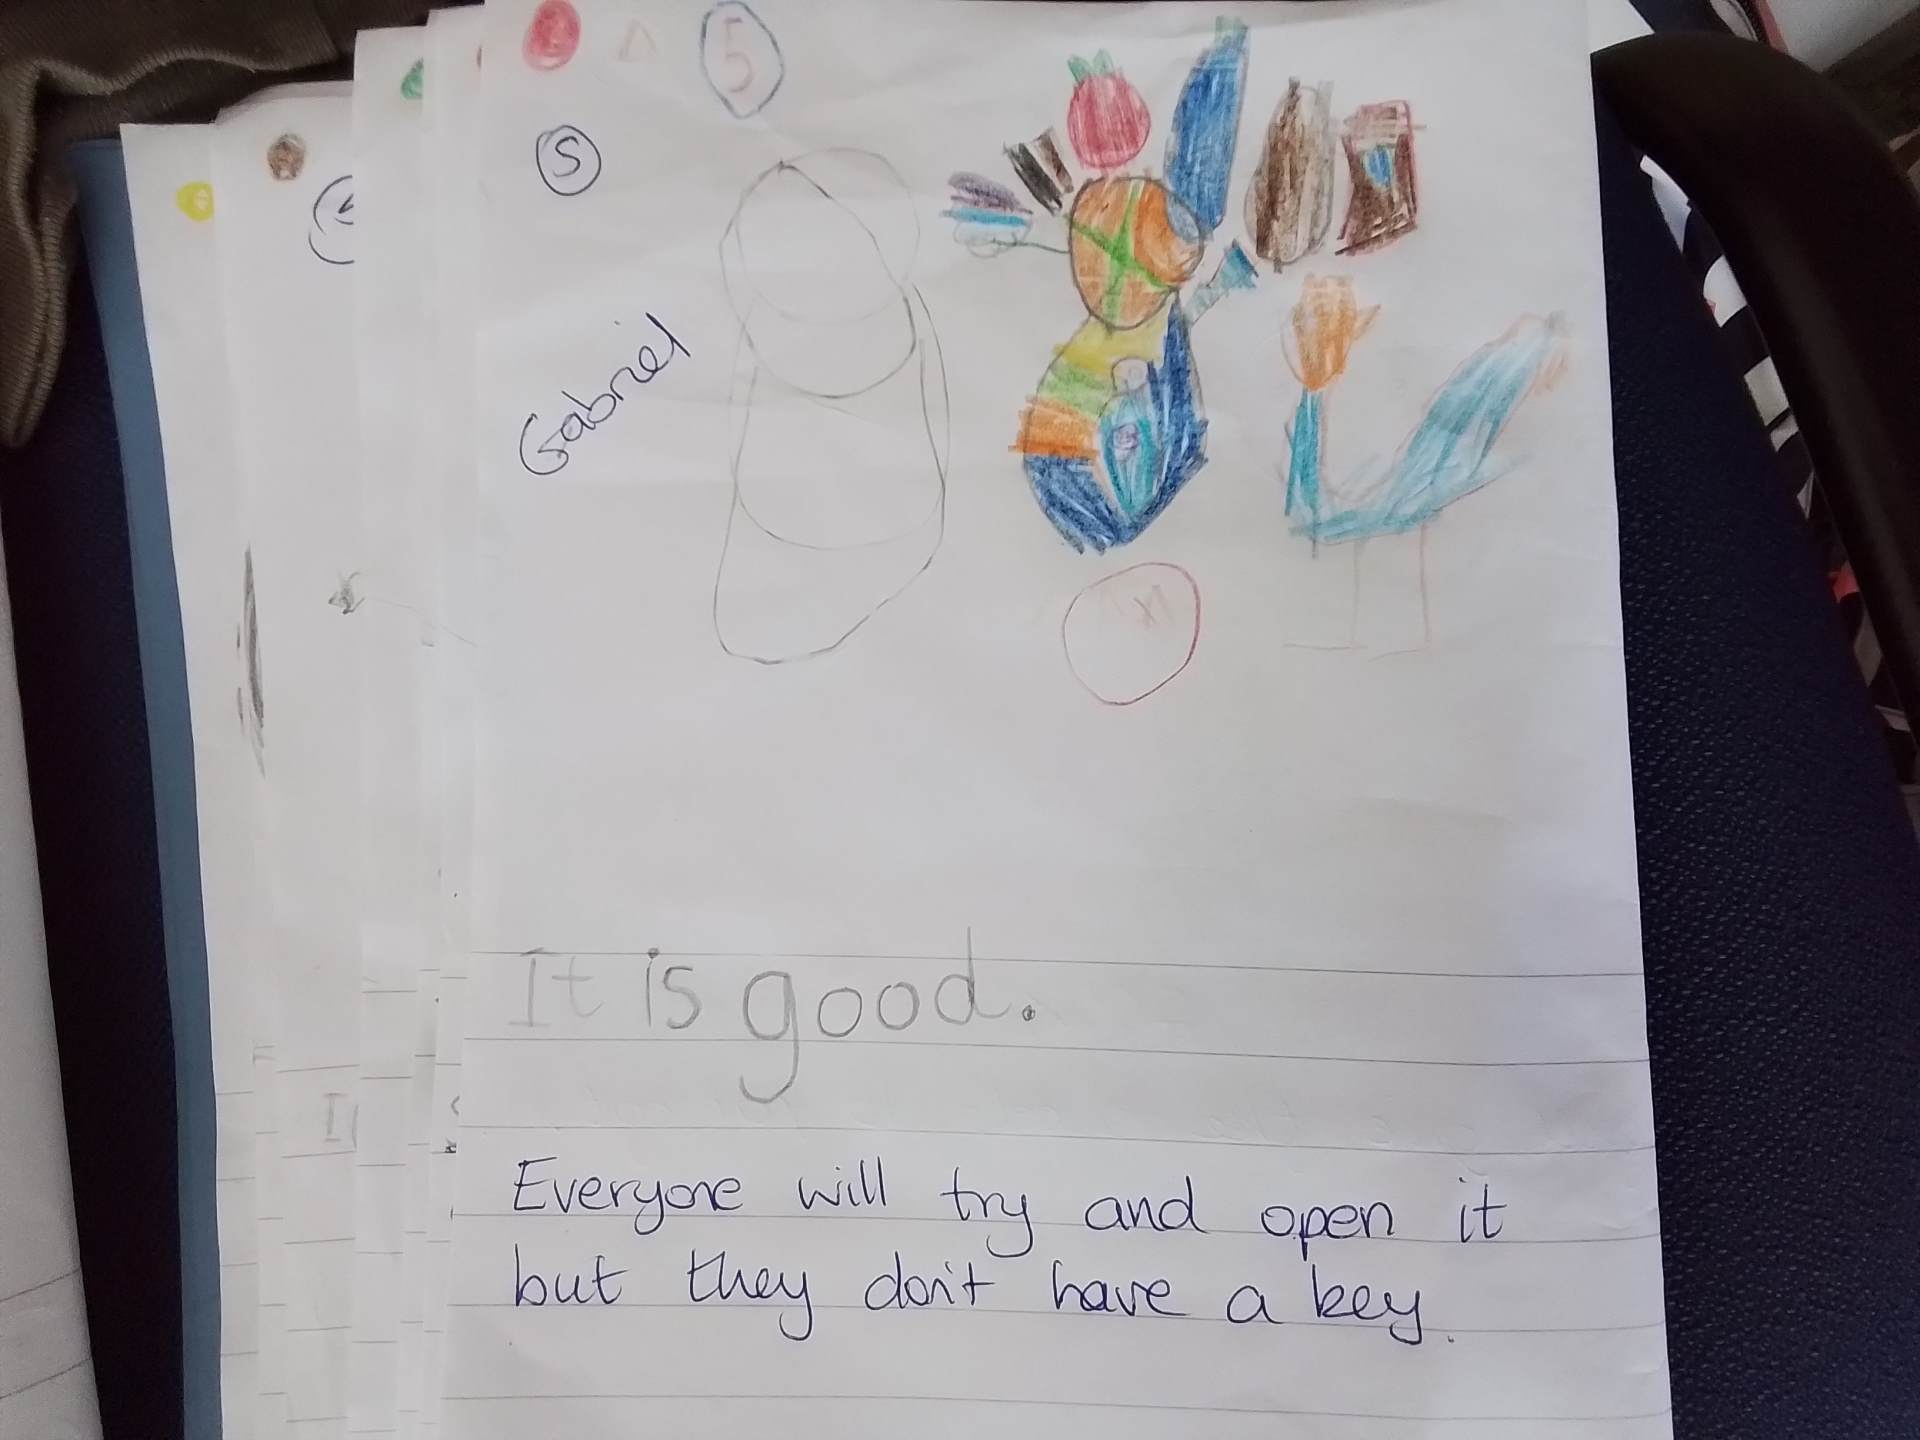 5
S
Gabriel
It is good.
Everyone will try and open it
but they don't have a key.